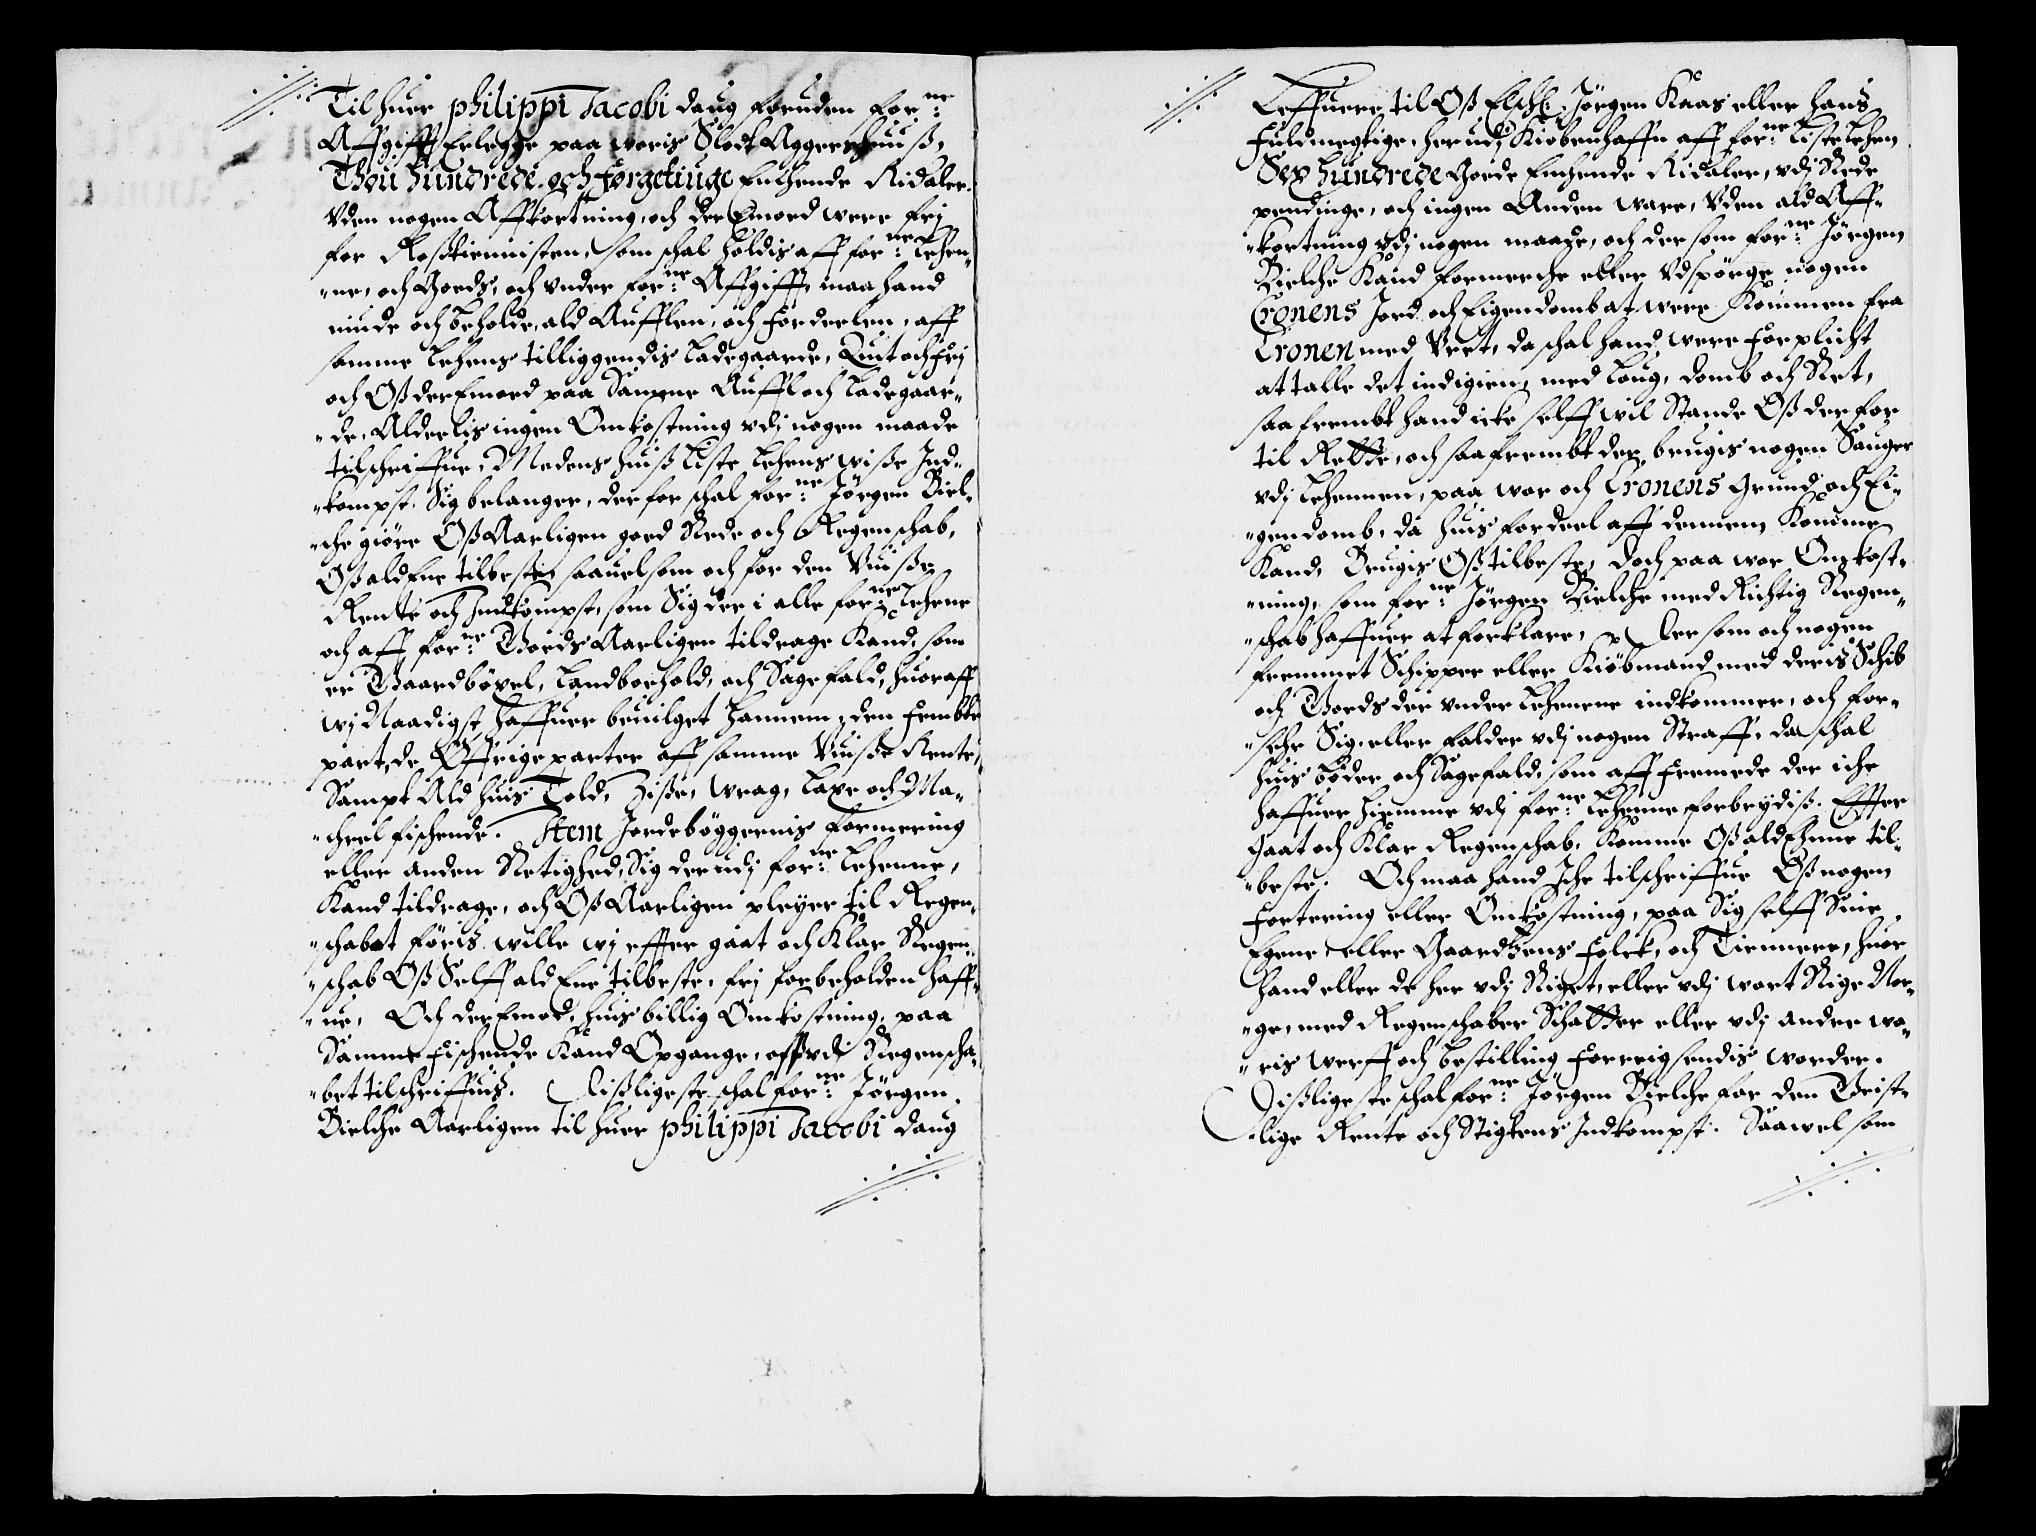 Til huer philippi Jacobi daug foruden for:ne
Affgifft Erlegge paa woris Slodt Aggershuuß,
Thou hundrede ochförgetiuge Enchende Ridaler.
Vden nogen Affkortning, och der Emord were frj
for Roßtiennisten, som schal holdis aff for:ne Lehen-
-ne, och Gords, och vnder for:ne Affgifft, maa hand
niude och beholde, ald Aufflen, och fordeelen, aff
samme Lehens tilliggendis ladegaarde, Quit och frj
och Oß der Emord paa Samme Auffl och Ladegaar-
-de, Alderlis ingen Omkostning vdj nogen maade
tilschriffue, Medens huiß Liste Lehens wiße Ind-
-kompst Sig belanger, derfor schal for:ne Jörgen Biel-
-che giöre Oß Aarligen goed Rede och Regenschab,
Oß aldEne tilbeste, saauelsom och for den Vuiße
Rente och Indkompst, som Sig der i alle for:ne Lehene
och aff for:ne Goeds Aarligen tildrage Kand, som
er Gaardböxel, Landboehold, och Sagefald, huoraff
wj Naadigst haffuer beuilget hannem, den Fembte
part, de Öffrige parter aff samme Vuiße Rente,
Sampt Ald huis Told, Ziße, wrag, Laxe och Ma-
-chrel fischende. Item Jordebøggernis formering
eller anden Retighed, Sig der udj for:ne Lehenne,
Kand tildrage, och Oß Aarligen pleyer til Regen-
-schabet föris wille wj effter gaat och Klar Regen-
-schab Oß Selff ald Ene tilbeste, frj forbeholden haff-
-ue, Och der Emod, huis billig Omkostning, paa
Samme fischende Kand Opgange, Oß vdj Regenscha-
-bet tilschriffuis. Dißligeste schal for:ne Jörgen
Bielche Aarligen til huer philippi Jacobi daug
Leffuere til Oß Elschl: Jörgen Kaas eller hans
Fuldmegtige, her udj Kiøbenhaffn aff for:ne Liste Lehen
Sex hundrede Goede Enchende Ridaler, vdj Rede
pendinge, och ingen Anden ware, Vden ald Aff-
-kortning vdj nogen maade, och der som for:ne Jörgen
Bielche Kand formerche eller Vdspörge nogen
Cronens Jord och Eigendomb at were Kommen fra
Cronen med Vret, da schal hand were forplicht
at talle det indigien, med Loug, domb och Ret,
saafrembt hand icke selff wil Stande Oß derfor
til Rette, och saafrembt der brugis nogen Sauger
vdj Lehennen, paa wor och Cronens Grund och Ei-
-gendomb, da huis fordeel aff dennem Komme
Kand, Brugis Oß tilbeste, Doch paa wor Omkost-
-ning, som for:ne Jörgen Bielche med Richtig Regen-
-schab haffuer at forklare, Der som och nogen
fremmet Schipper eller Kiöbmand med deris Schib
och Goeds der vnder Lehenene indkommer, och for-
-sehr Sig, eller falder vdj nogen Straff, da schal
huis Böder och Sagefald, som aff Fremede der iche
haffuer hiemme vdj for:ne Lehenne forbrydiß. Effter
Gaat och Klar Regenschab, Komme Oß aldEhene til-
-beste. Och maa hand Iche tilschriffue Oß nogen
Fortering eller Omkostning, paa Sig selff Sine
Egene eller Gaardzens folck, och Tiennere, huor
hand eller de her vdj Riget, eller vdj wort Rige Nor-
-ge, med Regenschaber Schatter eller vdj andre wo-
-ris werff och bestilling Forreigsendis worder.
Dißligeste schal for:ne Jörgen Bielche for den Geist-
-lige Rente och Stigtens Indkompst. Saawel som